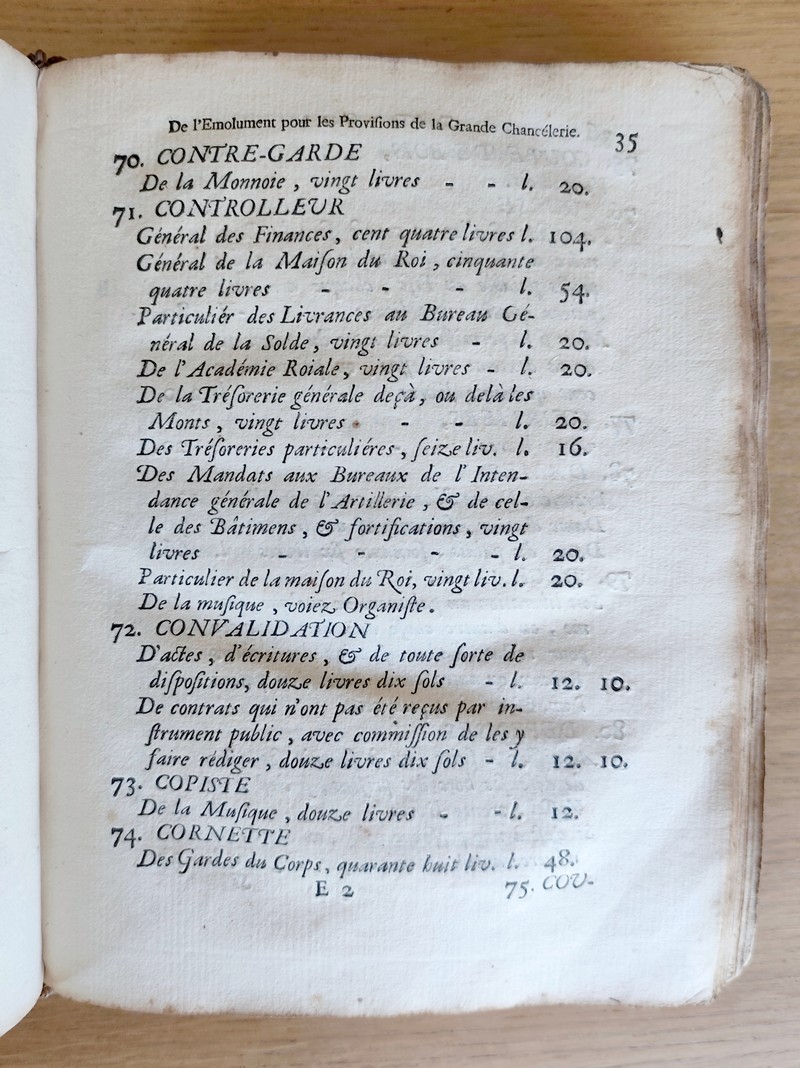 De l'Emolument pour les Proviſions de la Grande Chancélerie. 35
70. CONTRE-GARDE
De la Monnoie , vingt livres - - l. 20.
71. CONTROLLEUR
Général des Finances, cent quatre livres l. 104.
Général de la Maiſon du Roi , cinquante
quatre livres - - - l. 54.
Particuliér des Livrances au Bureau Gé-
néral de la Solde, vingt livres - l. 20.
De l'Académie Roiale, vingt livres - l. 20.
De la Tréſorerie générale deçà, ou delà les
Monts , vingt livres - - l. 20.
Des Tréſoreries particuliéres, ſeize liv. l. 16.
Des Mandats aux Bureaux de l'Inten-
dance générale de l'Artillerie , & de cel-
le des Bâtimens , & fortifications, vingt
livres - - - - l. 20.
Particulier de la maiſon du Roi, vingt liv. l. 20.
De la muſique , voiez Organiſte.
72. CONVALIDATION
D'actes , d'écritures , & de toute ſorte de
diſpoſitions, douze livres dix ſols - l. 12. 10.
De contrats qui n'ont pas été reçus par in-
ſtrument public , avec commiſſion de les y
faire rédiger , douze livres dix ſols - l. 12. 10.
73. COPISTE
De la Muſique , douze livres - - l. 12.
74. CORNETTE
Des Gardes du Corps, quarante huit liv. l. 48.
E 2 75. COU-